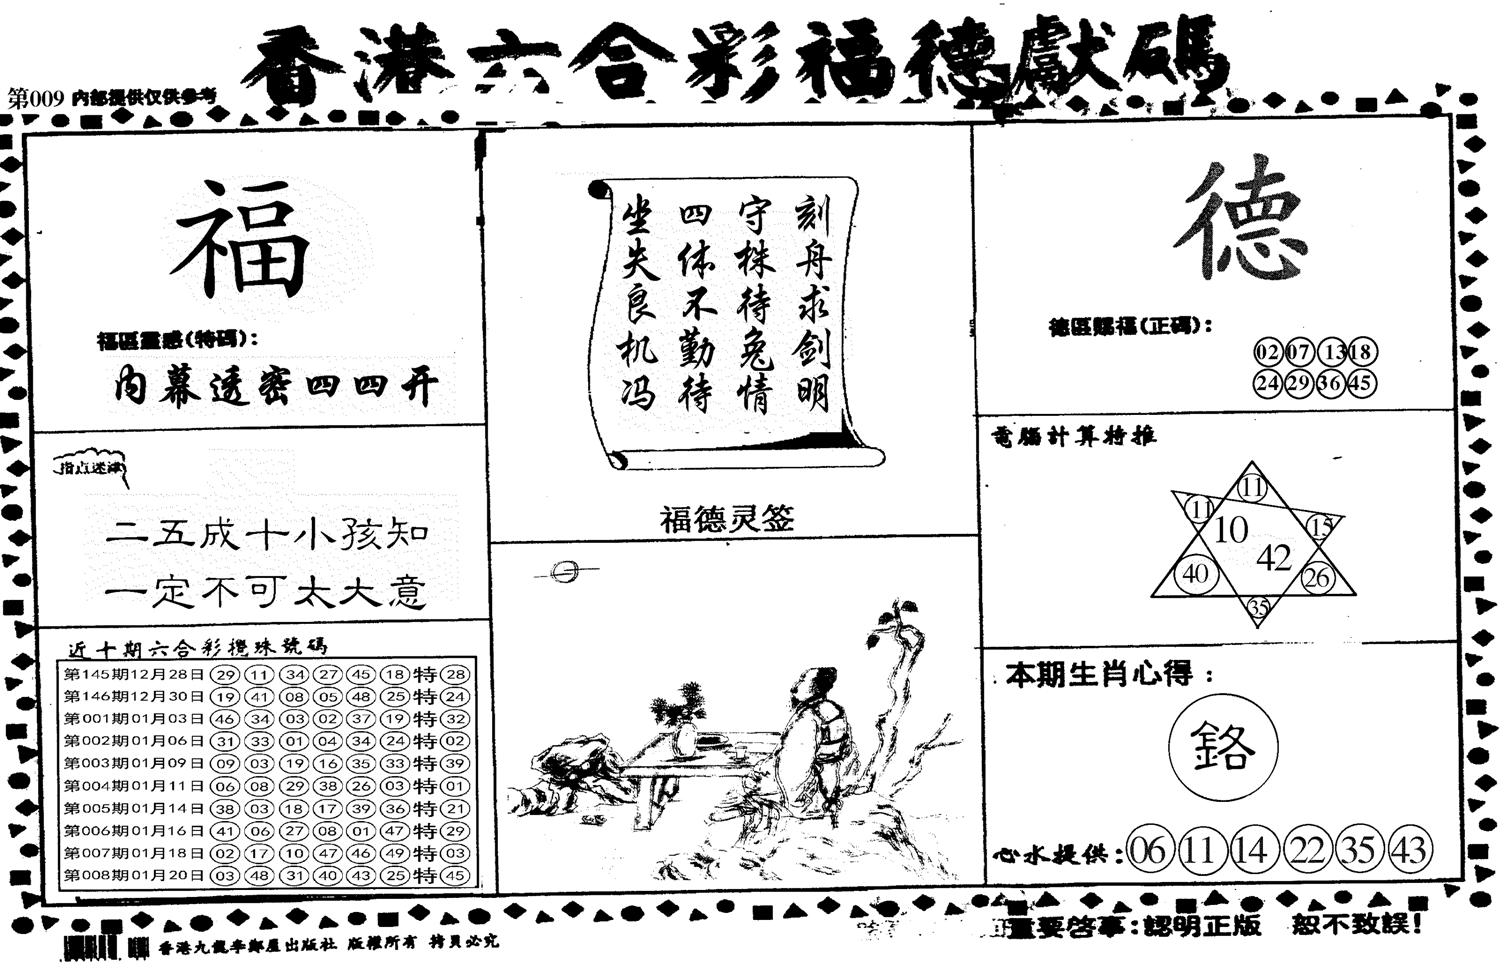 香港六合彩福德獻碼
第009 内部提供仅供参考
福
福區靈感(特碼):
内幕透密四四开
指点迷津
二五成十小孩知
一定不可太大意
近十期六合彩攪珠號碼
第145期12月28日 29 11 34 27 45 18 特 28
第146期12月30日 19 41 08 05 48 25 特 24
第001期01月03日 46 34 03 02 37 19 特 32
第002期01月06日 31 33 01 04 34 24 特 02
第003期01月09日 09 03 19 16 35 33 特 39
第004期01月11日 06 08 29 38 26 03 特 01
第005期01月14日 38 03 18 17 39 36 特 21
第006期01月16日 41 06 27 08 01 47 特 29
第007期01月18日 02 17 10 47 46 49 特 03
第008期01月20日 03 48 31 40 43 25 特 45
刻舟求剑明
守株待兔情
四体不勤待
坐失良机冯
福德灵签
德
德區賜福(正碼):
02 07 13 18
24 29 36 45
電腦計算特推
11
11 15
10
42
40 26
35
本期生肖心得:
鉻
心水提供: 06 11 14 22 35 43
重要啓事:認明正版 恕不致誤!
香港九龍李鄭屋出版社 版權所有 拷貝必究